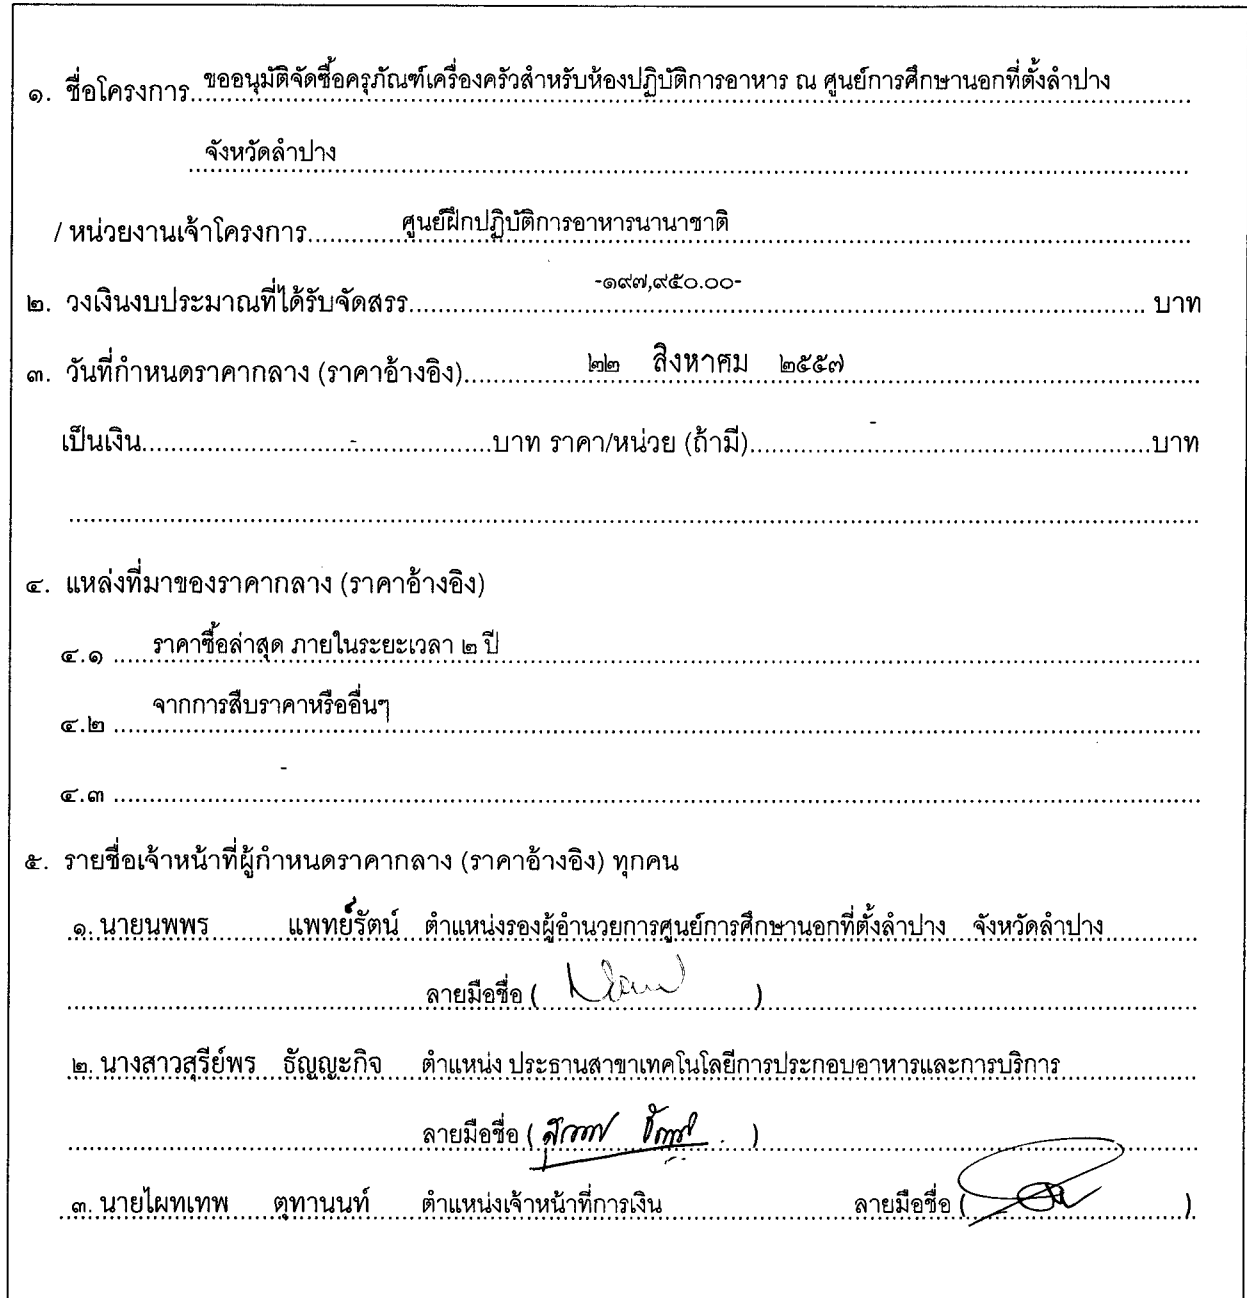 ๑. ชื่อโครงการ ขออนุมัติจัดซื้อครุภัณฑ์เครื่องครัวสำหรับห้องปฏิบัติการอาหาร ณ ศูนย์การศึกษานอกที่ตั้งลำปาง
จังหวัดลำปาง
/ หน่วยงานเจ้าโครงการ ศูนย์ฝึกปฏิบัติการอาหารนานาชาติ
๒. วงเงินงบประมาณที่ได้รับจัดสรร -๑๙๗,๙๕๐.๐๐- บาท
๓. วันที่กำหนดราคากลาง (ราคาอ้างอิง) ๒๒ สิงหาคม ๒๕๕๗
เป็นเงิน - บาท ราคา/หน่วย (ถ้ามี) - บาท
๔. แหล่งที่มาของราคากลาง (ราคาอ้างอิง)
๔.๑ ราคาซื้อล่าสุด ภายในระยะเวลา ๒ ปี
๔.๒ จากการสืบราคาหรืออื่นๆ
๔.๓ -
๕. รายชื่อเจ้าหน้าที่ผู้กำหนดราคากลาง (ราคาอ้างอิง) ทุกคน
๑. นายนพพร แพทย์รัตน์ ตำแหน่งรองผู้อำนวยการศูนย์การศึกษานอกที่ตั้งลำปาง จังหวัดลำปาง
ลายมือชื่อ ( )
๒. นางสาวสุรีย์พร ธัญญะกิจ ตำแหน่ง ประธานสาขาเทคโนโลยีการประกอบอาหารและการบริการ
ลายมือชื่อ ( )
๓. นายไผทเทพ ตุทานนท์ ตำแหน่งเจ้าหน้าที่การเงิน ลายมือชื่อ ( )